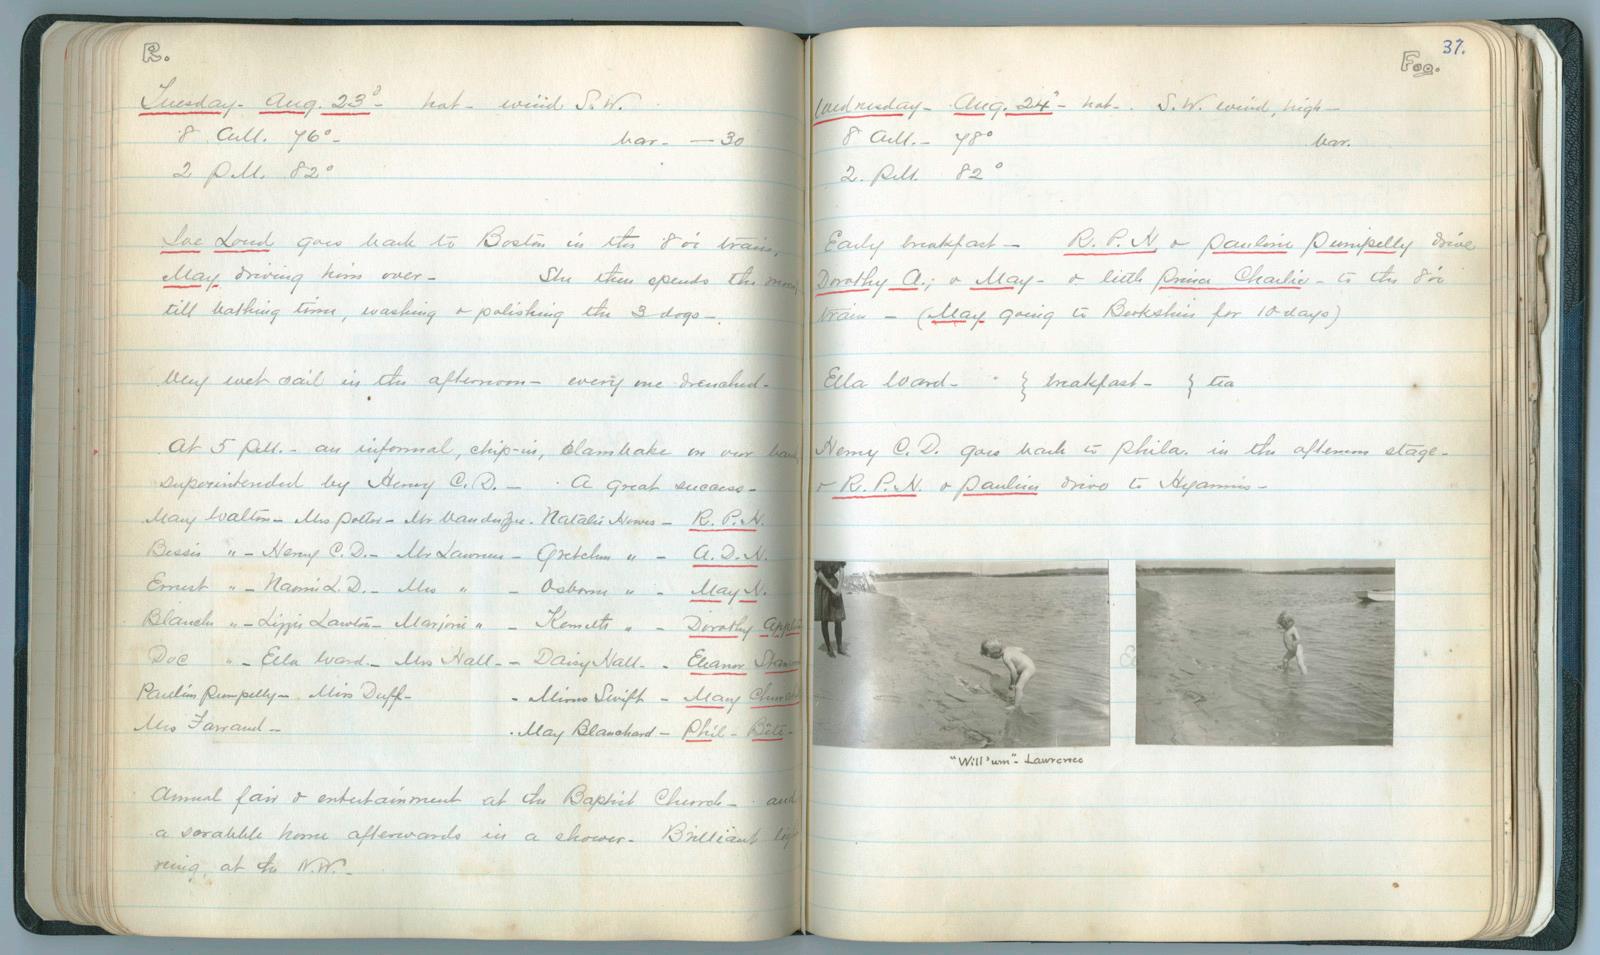 R.
Tuesday - Aug. 23° - hot - wind S.W.
8 A.M. 76° -
bar. - 30
2 P.M. 82°
Joe Loud goes back to Boston in the 8 o'c train,
May driving him over - She then spends the
till bathing time, washing & polishing the 3 dogs -
Very wet sail in the afternoon - every one drenched -
At 5 P.M. - an informal, chip-in, clambake on our
superintended by Henry C.D. - A great success -
Mary Walton - Mrs Potter - Mr Vanderzee - Natalie Howes - R.P.N.
Bessie " - Henry C.D. - Mr Lawrence - Gretchen " - A.D.N.
Ernest " - Naomi L.D. - Mrs " - Osborne " - May N.
Blanche " - Lizzie Lawton - Marjorie " - Kenneth " - Dorothy
Doc " - Ella Ward - Mrs Hall - Daisy Hall - Eleanor
Pauline Pumpelly - Miss Duff - - Minns Swift - Mary
Mrs Farrand - - May Blanchard - Phil -
Annual fair & entertainment at the Baptist Church - and
a scrabble home afterwards in a shower - Brilliant
ning, at the N.W. -
37.
Fog.
Wednesday - Aug. 24° - hot - S.W. wind, high -
8 A.M. - 78°
bar.
2. P.M. 82°
Early breakfast - R.P.N & Pauline Pumpelly drive
Dorothy A.; & May - & little Prince Charlie - to the 8 o'c
train - (May going to Berkshire for 10 days)
Ella Ward - } breakfast - } tea
Henry C.D. goes back to Phila. in the afternoon stage -
& R.P.N. & Pauline drive to Hyannis -
"Will'um" - Lawrence